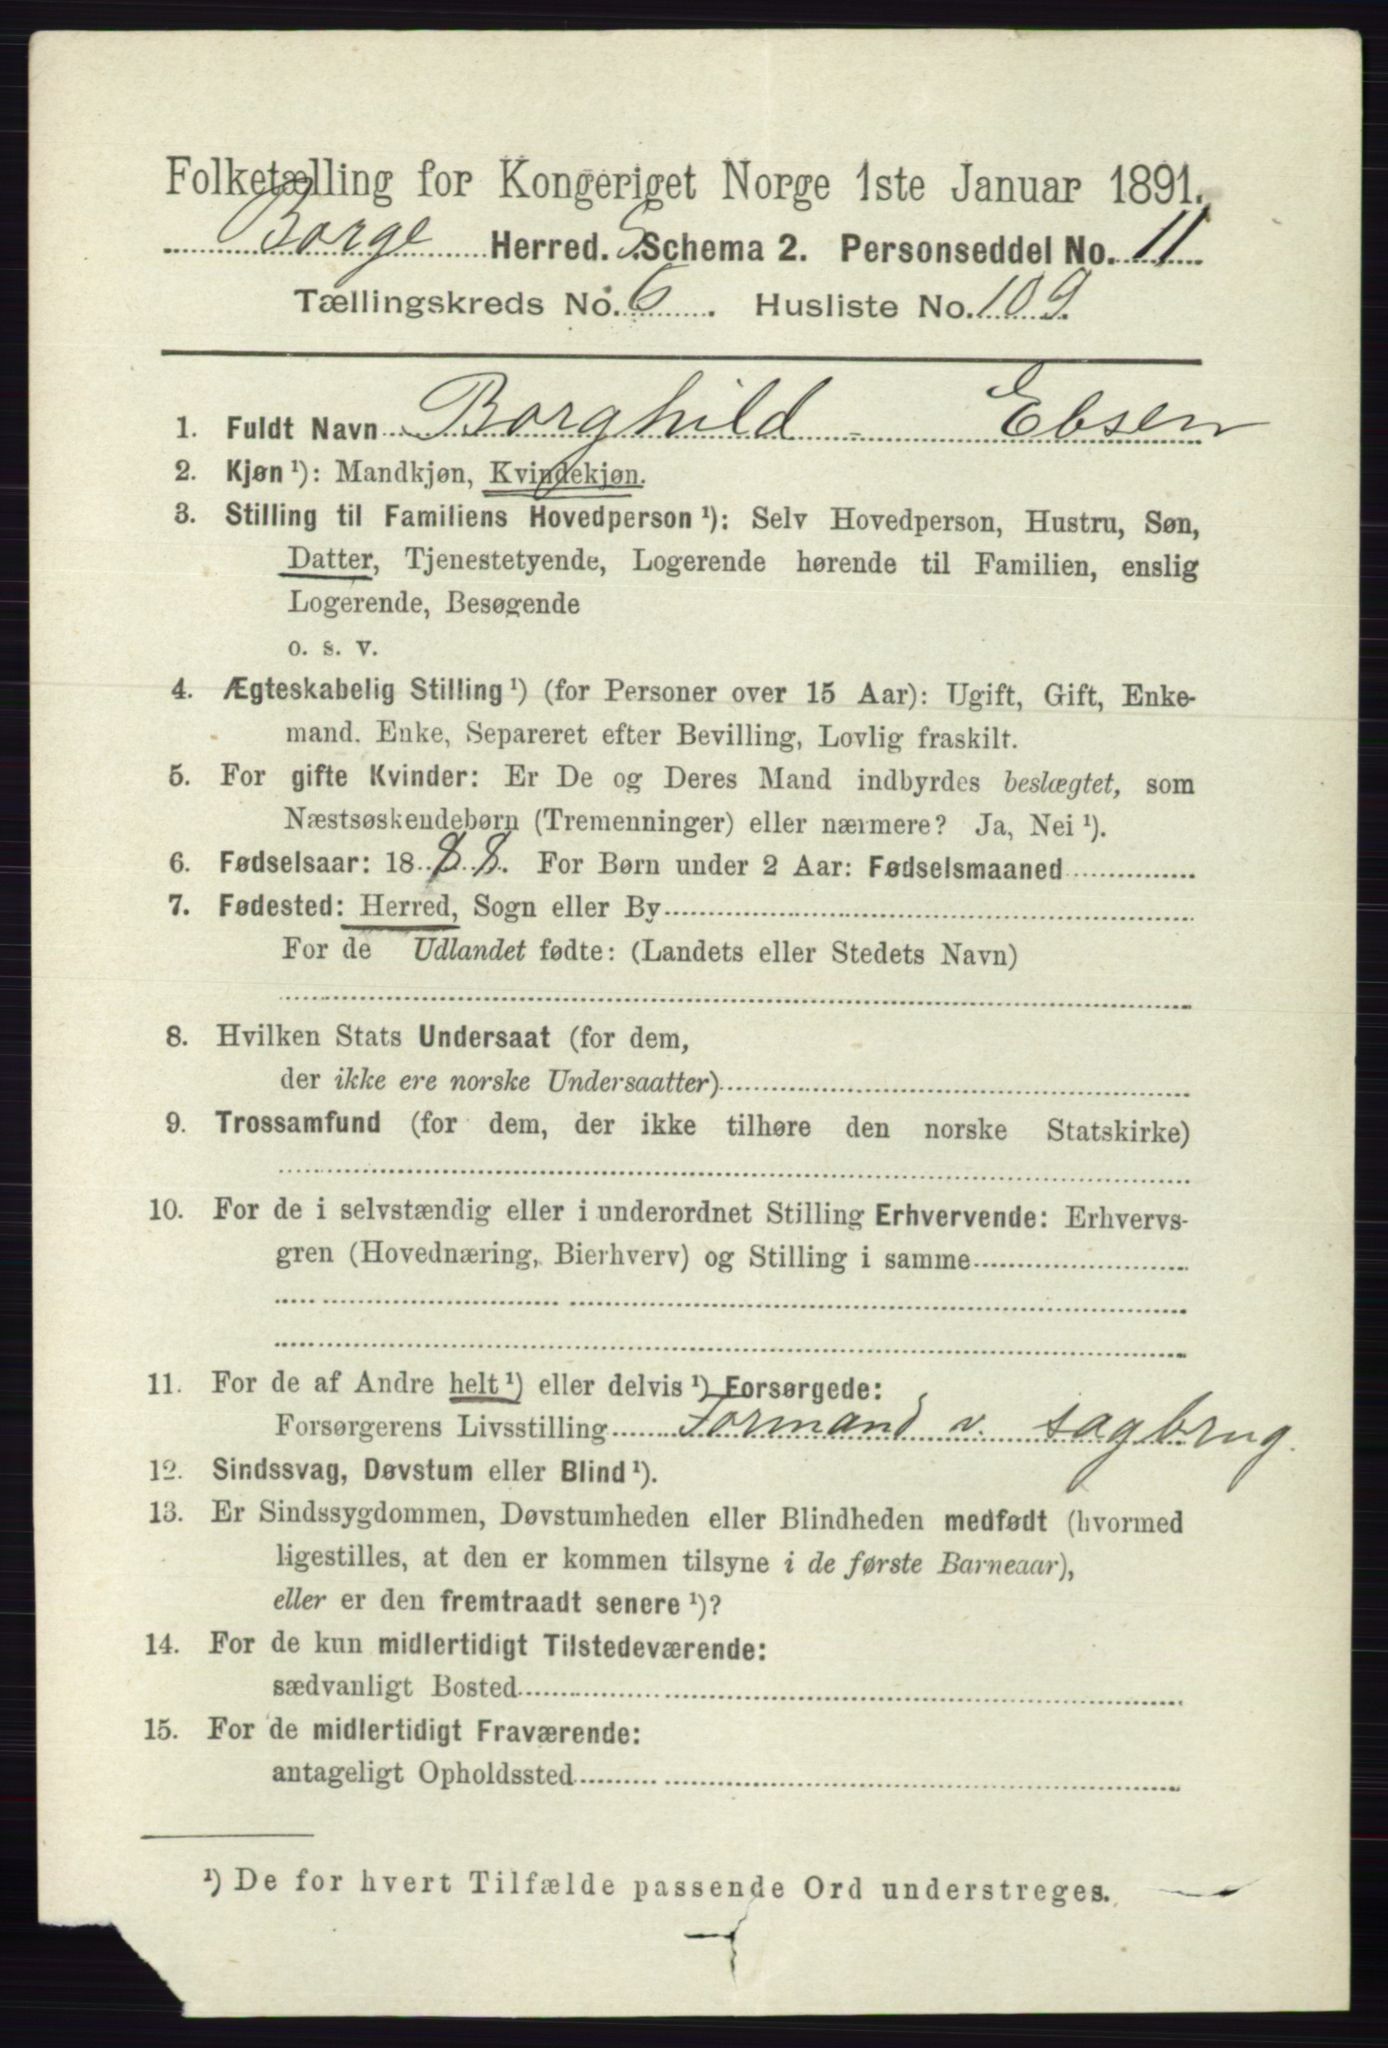 Folketælling for Kongeriget Norge 1ste Januar 1891.
Borge Herred. S. Schema 2. Personseddel No. 11
Tællingskreds No. 6. Husliste No. 109
1. Fuldt Navn Borghild - Ebsen
2. Kjøn ¹): Mandkjøn, Kvindekjøn.
3. Stilling til Familiens Hovedperson ¹): Selv Hovedperson, Hustru, Søn,
Datter, Tjenestetyende, Logerende hørende til Familien, enslig
Logerende, Besøgende
o. s. v.
4. Ægteskabelig Stilling ¹) (for Personer over 15 Aar): Ugift, Gift, Enke-
mand. Enke, Separeret efter Bevilling, Lovlig fraskilt.
5. For gifte Kvinder: Er De og Deres Mand indbyrdes beslægtet, som
Næstsøskendebørn (Tremenninger) eller nærmere? Ja, Nei ¹).
6. Fødselsaar: 1888. For Børn under 2 Aar: Fødselsmaaned
7. Fødested: Herred, Sogn eller By
For de Udlandet fødte: (Landets eller Stedets Navn)
8. Hvilken Stats Undersaat (for dem,
der ikke ere norske Undersaatter)
9. Trossamfund (for dem, der ikke tilhøre den norske Statskirke)
10. For de i selvstændig eller i underordnet Stilling Erhvervende: Erhvervs-
gren (Hovednæring, Bierhverv) og Stilling i samme
11. For de af Andre helt ¹) eller delvis ¹) Forsørgede:
Forsørgerens Livsstilling Formand v. sagbrug.
12. Sindssvag, Døvstum eller Blind ¹).
13. Er Sindssygdommen, Døvstumheden eller Blindheden medfødt (hvormed
ligestilles, at den er kommen tilsyne i de første Barneaar),
eller er den fremtraadt senere ¹)?
14. For de kun midlertidigt Tilstedeværende:
sædvanligt Bosted
15. For de midlertidigt Fraværende:
antageligt Opholdssted
¹) De for hvert Tilfælde passende Ord understreges.